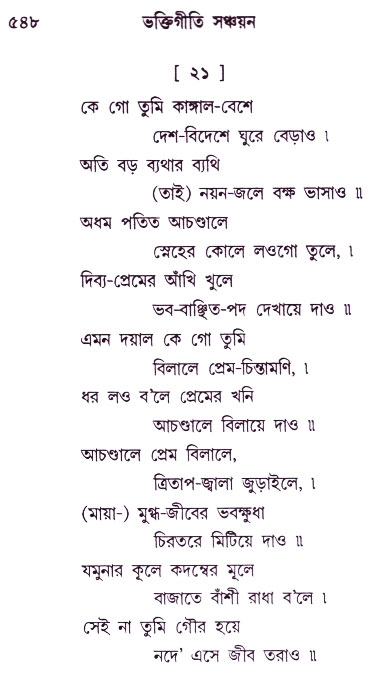 ৫৪৮ ভক্তিগীতি সঞ্চয়ন
[ ২১ ]
কে গো তুমি কাঙ্গাল-বেশে
দেশ-বিদেশে ঘুরে বেড়াও ।
অতি বড় ব্যথার ব্যথি
(তাই) নয়ন-জলে বক্ষ ভাসাও ॥
অধম পতিত আচণ্ডালে
স্নেহের কোলে লওগো তুলে, ।
দিব্য-প্রেমের আঁখি খুলে
ভব-বাঞ্ছিত-পদ দেখায়ে দাও ॥
এমন দয়াল কে গো তুমি
বিলালে প্রেম-চিন্তামণি, ।
ধর লও ব'লে প্রেমের খনি
আচণ্ডালে বিলায়ে দাও ॥
আচণ্ডালে প্রেম বিলালে,
ত্রিতাপ-জ্বালা জুড়াইলে, ।
(মায়া-) মুগ্ধ-জীবের ভবক্ষুধা
চিরতরে মিটিয়ে দাও ॥
যমুনার কূলে কদম্বের মূলে
বাজাতে বাঁশী রাধা ব'লে ।
সেই না তুমি গৌর হয়ে
নদে' এসে জীব তরাও ॥